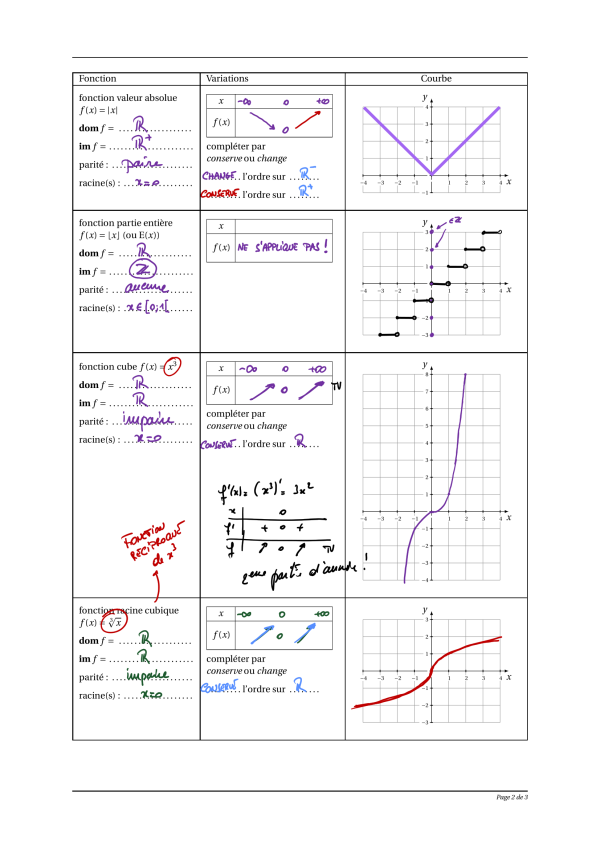 Fonction Variations Courbe
fonction valeur absolue
f(x) = |x|
dom f = ....ℝ............
im f = ......ℝ⁺............
parité : ...paire.........
racine(s) : ...x=0........
x -∞ 0 +∞
f(x) ↘ 0 ↗
compléter par
conserve ou change
CHANGE..l'ordre sur ...ℝ⁻...
CONSERVE..l'ordre sur ...ℝ⁺...
y
4
3
2
1
−1
−4 −3 −2 −1 1 2 3 4 x
fonction partie entière
f(x) = ⌊x⌋ (ou E(x))
dom f = ....ℝ............
im f = ......ℤ............
parité : ...aucune.........
racine(s) : .x∈[0;1[.......
x
f(x) NE S'APPLIQUE PAS !
y
∈ℤ
3
2
1
−1
−2
−3
−4 −3 −2 −1 1 2 3 4 x
fonction cube f(x) = x³
dom f = ....ℝ............
im f = ......ℝ............
parité : ...impaire.........
racine(s) : ...x=0........
x -∞ 0 +∞
f(x) ↗ 0 ↗ TV
compléter par
conserve ou change
CONSERVE..l'ordre sur ..ℝ....
f'(x) = (x³)' = 3x²
x 0
f' + 0 +
f ↗ 0 ↗ TV
2ème partie d'année !
y
8
7
6
5
4
3
2
1
−1
−2
−3
−4
−4 −3 −2 −1 1 2 3 4 x
FONCTION
RÉCIPROQUE
de x³
fonction racine cubique
f(x) = ∛x
dom f = ......ℝ..........
im f = ........ℝ..........
parité : ...impaire.........
racine(s) : ....x=0........
x -∞ 0 +∞
f(x) ↗ 0 ↗
compléter par
conserve ou change
CONSERVE..l'ordre sur ..ℝ....
y
3
2
1
−1
−2
−3
−4 −3 −2 −1 1 2 3 4 x
Page 2 de 3